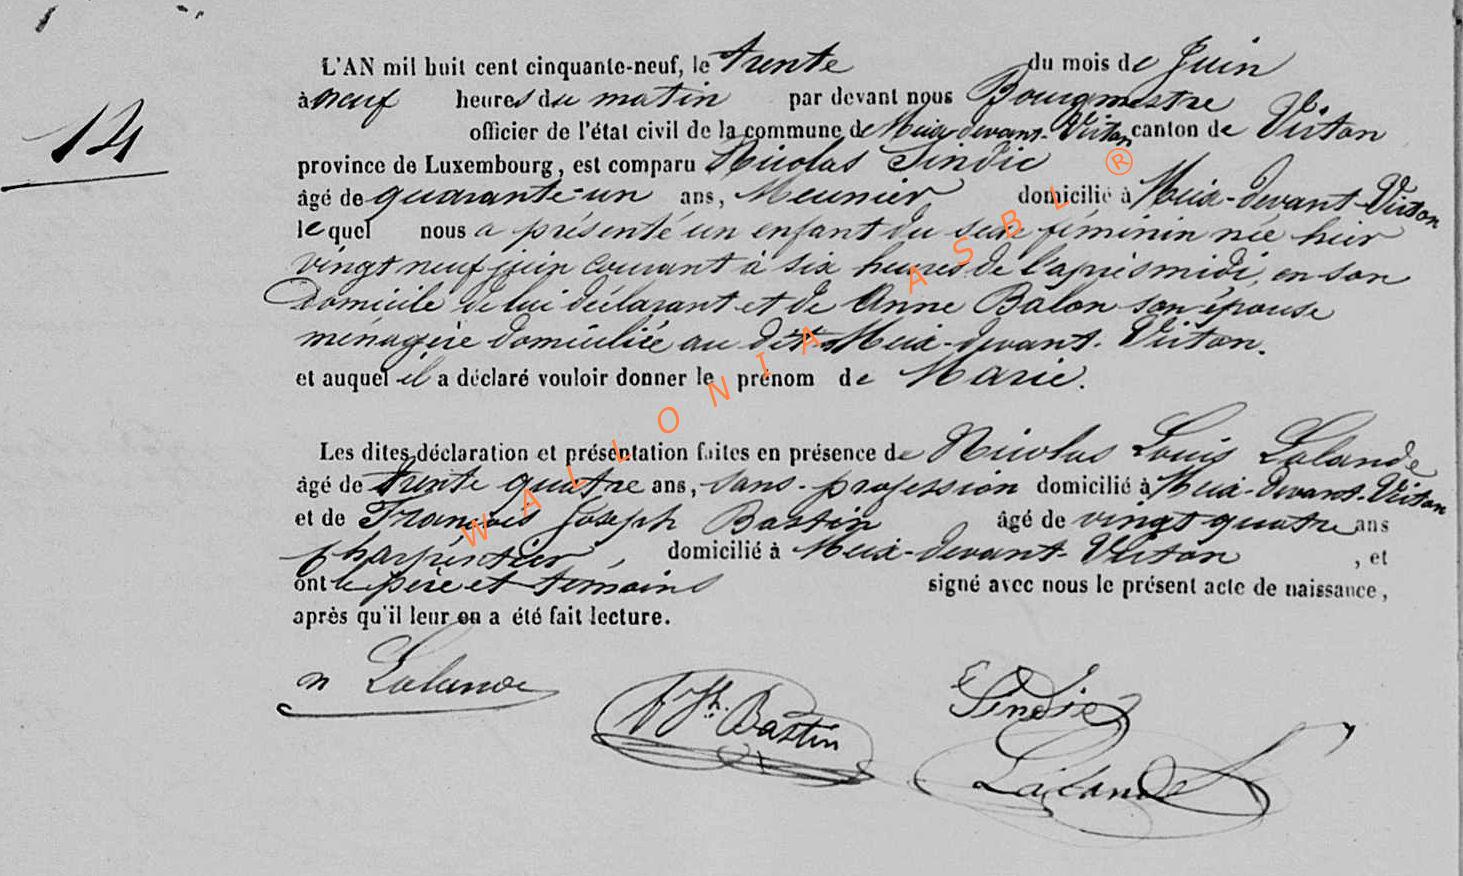 14
L'AN mil huit cent cinquante-neuf, le trente du mois de Juin
à neuf heures du matin par devant nous Bourgmestre
officier de l'état civil de la commune de Meix-devant-Virton canton de Virton
province de Luxembourg, est comparu Nicolas Sindic
âgé de quarante-un ans, Meunier domicilié à Meix-devant-Virton
lequel nous a présenté un enfant du sexe féminin née hier
vingt neuf juin courant à six heures de l'après midi, en son
domicile de lui déclarant et de Anne Balon son épouse
ménagère domiciliée au dit Meix-devant-Virton.
et auquel il a déclaré vouloir donner le prénom de Marie.
Les dites déclaration et présentation faites en présence de Nicolas Louis Lalande
âgé de trente quatre ans, sans-profession domicilié à Meix-devant-Virton
et de François Joseph Bastin âgé de vingt quatre ans
Charpentier, domicilié à Meix-devant-Virton, et
ont le père et témoins signé avec nous le présent acte de naissance,
après qu'il leur en a été fait lecture.
n Lalande
f Jh. Bastin
Sindic
Lalande
WALLONIA ASBL ®